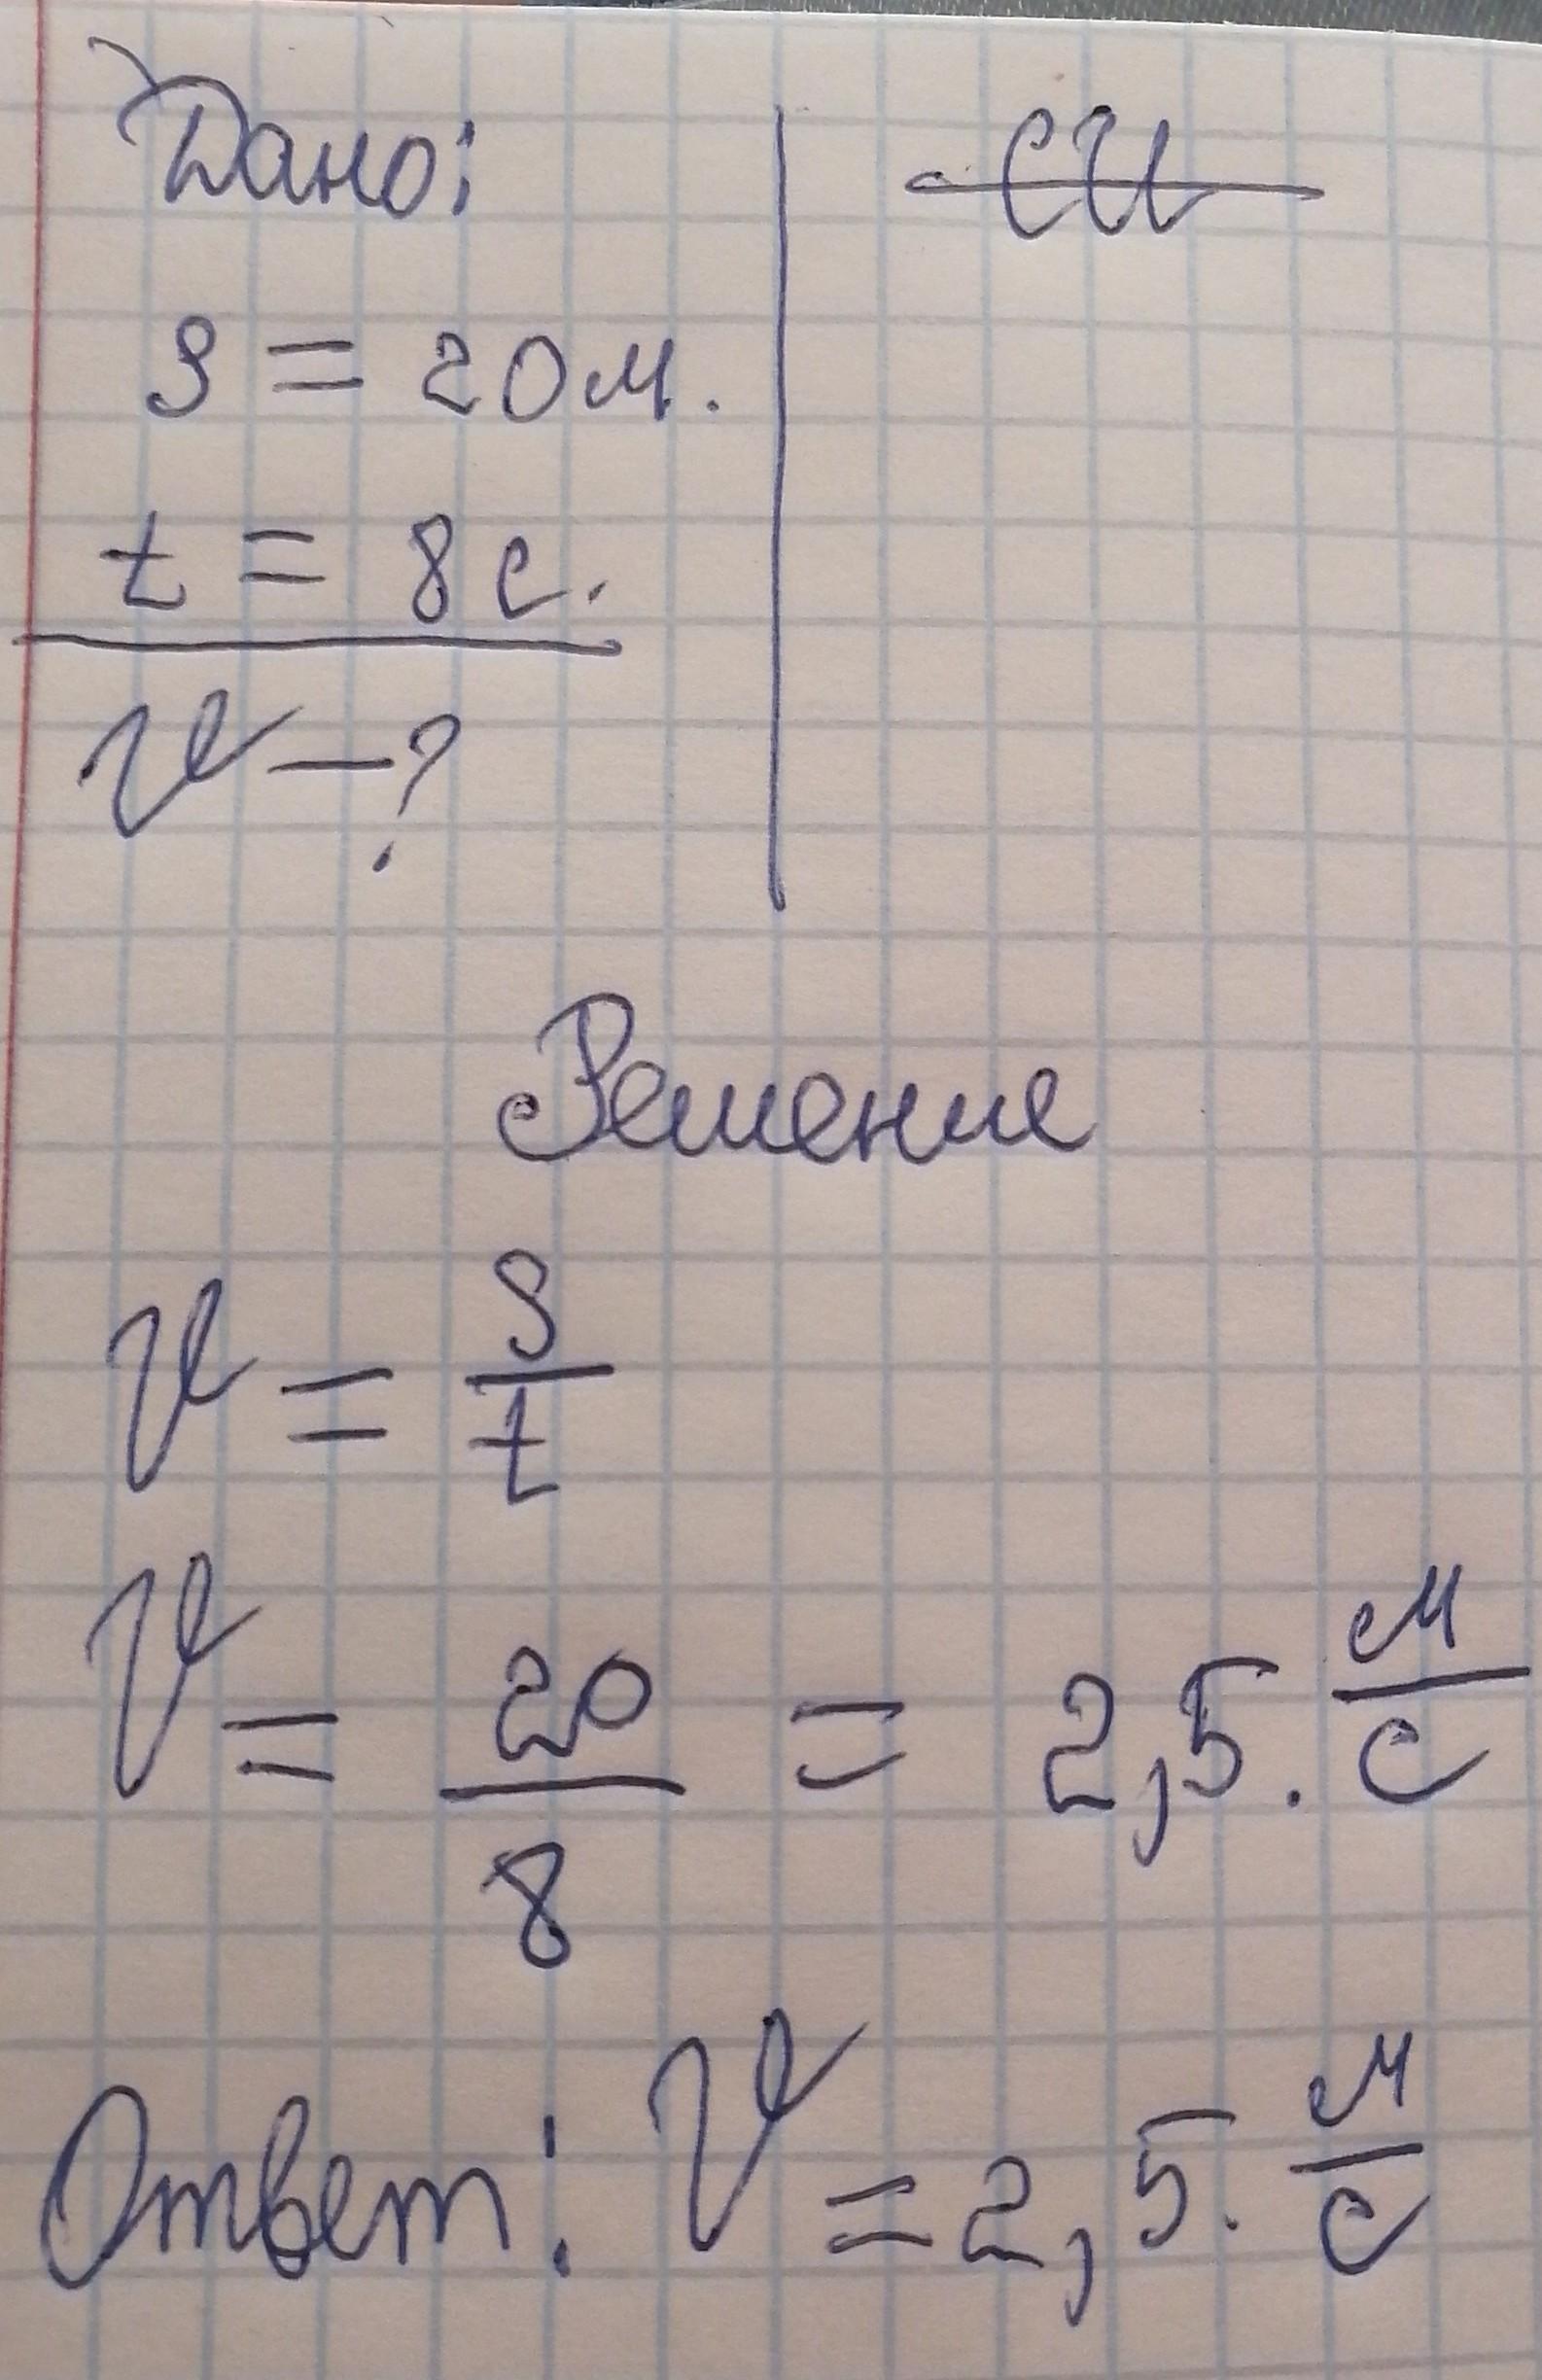 Дано: СИ
S = 20 м.
t = 8 с.
V – ?
Решение
V = S/t
V = 20/8 = 2,5. м/с
Ответ: V = 2,5. м/с